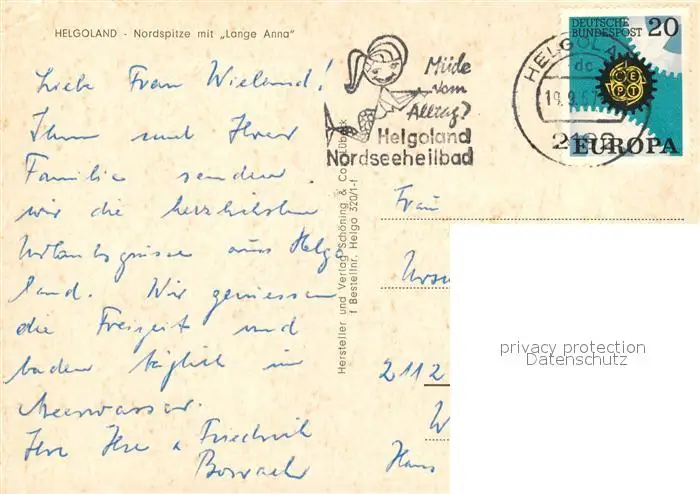 HELGOLAND - Nordspitze mit „Lange Anna"
Liebe Frau Wieland!
Ihnen und Ihrer
Familie senden
wir die herzlichsten
Urlaubsgrüsse aus Helgo
land. Wir geniessen
die Freizeit und
baden täglich im
Meerwasser.
Ihre Ilse & Friedrich
Müde
vom
Alltag?
Helgoland
Nordseeheilbad
HELGOLA
dc
19.9.6
2192
DEUTSCHE
BUNDESPOST 20
CEPT
EUROPA
Hersteller und Verlag Schöning & Co., Lübeck
Bestellnr. Helgo 320/1-f
Frau
Ursu
2112
W
Hans
privacy protection
Datenschutz